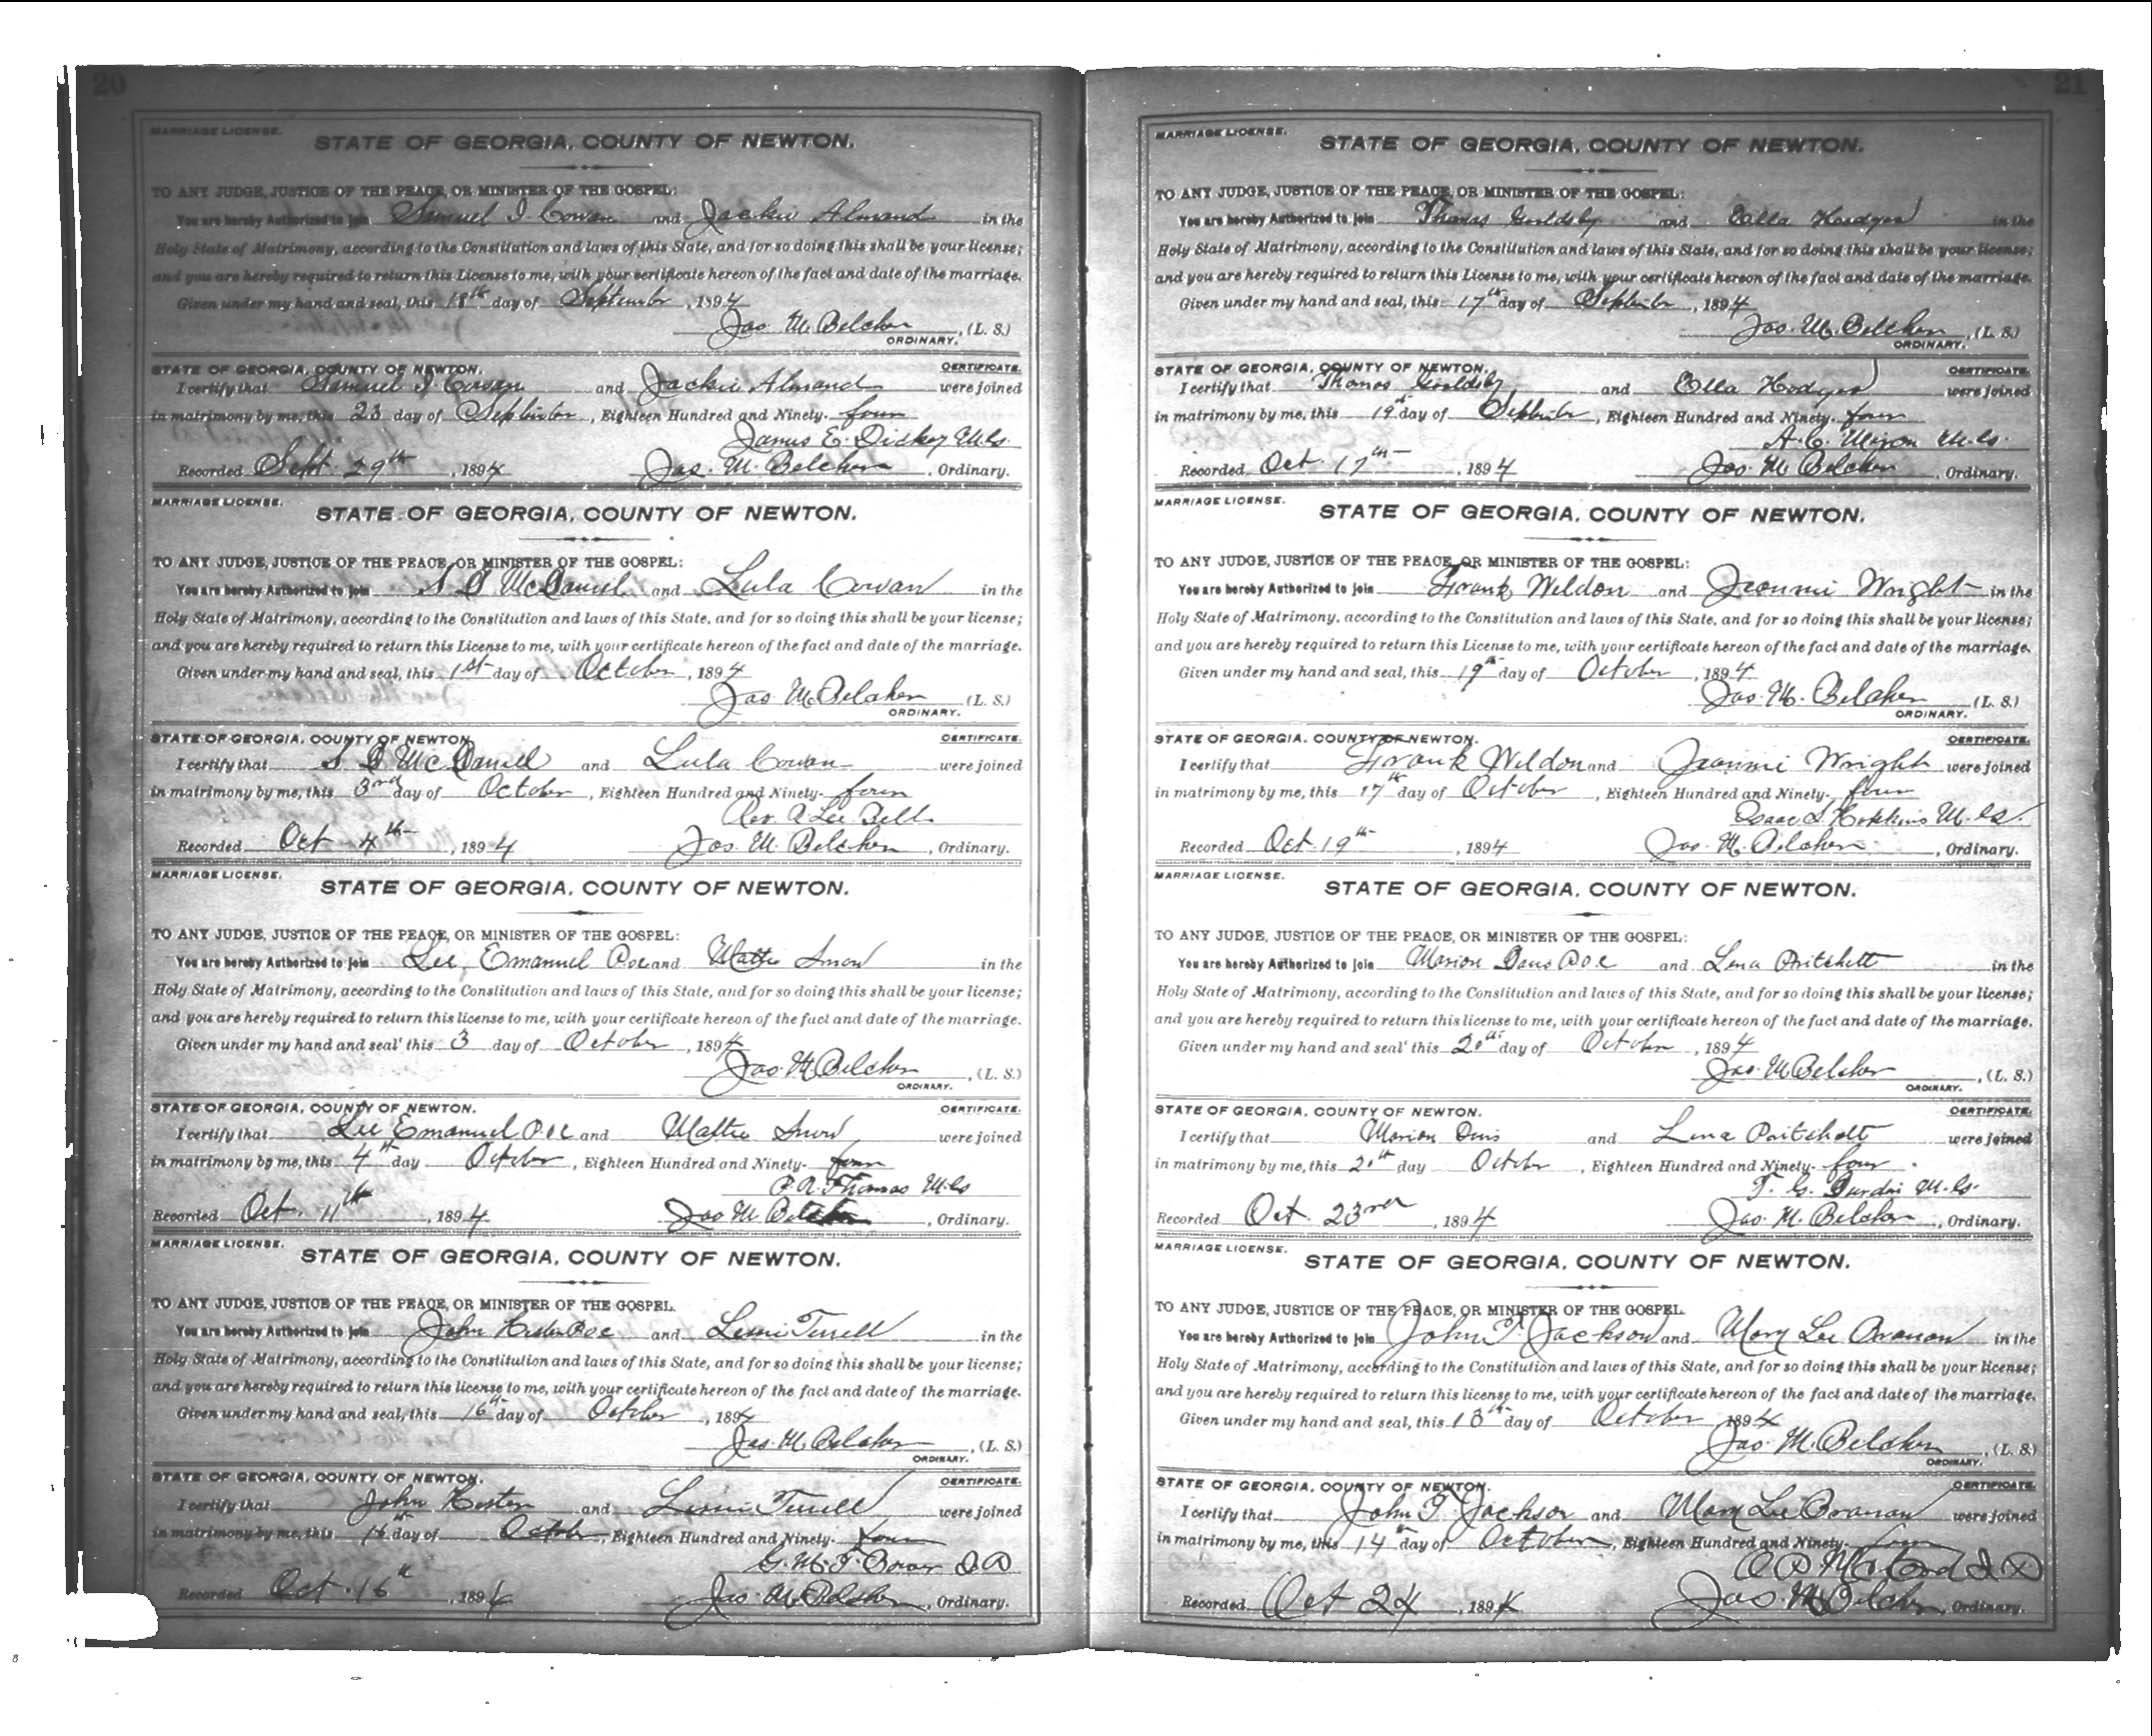 20
MARRIAGE LICENSE.
STATE OF GEORGIA, COUNTY OF NEWTON.
TO ANY JUDGE, JUSTICE OF THE PEACE, OR MINISTER OF THE GOSPEL:
You are hereby Authorized to join Samuel I. Cowan and Jackie Almand in the
Holy State of Matrimony, according to the Constitution and laws of this State, and for so doing this shall be your license;
and you are hereby required to return this License to me, with your certificate hereon of the fact and date of the marriage.
Given under my hand and seal, this 18th day of September, 1894
Jas M. Belcher, (L. S.)
ORDINARY.
STATE OF GEORGIA, COUNTY OF NEWTON. CERTIFICATE.
I certify that Samuel I Cowan and Jackie Almand were joined
in matrimony by me, this 23 day of September, Eighteen Hundred and Ninety-four
James E. Dickey M.G.
Recorded Sept. 29th, 1894 Jas. M. Belcher, Ordinary.
MARRIAGE LICENSE.
STATE OF GEORGIA, COUNTY OF NEWTON.
TO ANY JUDGE, JUSTICE OF THE PEACE, OR MINISTER OF THE GOSPEL:
You are hereby Authorized to join S D McDaniel and Lula Cowan in the
Holy State of Matrimony, according to the Constitution and laws of this State, and for so doing this shall be your license;
and you are hereby required to return this License to me, with your certificate hereon of the fact and date of the marriage.
Given under my hand and seal, this 1st day of October, 1894
Jas M. Belcher (L. S.)
ORDINARY.
STATE OF GEORGIA, COUNTY OF NEWTON. CERTIFICATE.
I certify that S D McDaniell and Lula Cowan were joined
in matrimony by me, this 3rd day of October, Eighteen Hundred and Ninety-four
Rev. A Lee Bell
Recorded Oct 4th, 1894 Jas. M. Belcher, Ordinary.
MARRIAGE LICENSE.
STATE OF GEORGIA, COUNTY OF NEWTON.
TO ANY JUDGE, JUSTICE OF THE PEACE, OR MINISTER OF THE GOSPEL:
You are hereby Authorized to join Lee Emanuel Poe and Mattie Snow in the
Holy State of Matrimony, according to the Constitution and laws of this State, and for so doing this shall be your license;
and you are hereby required to return this license to me, with your certificate hereon of the fact and date of the marriage.
Given under my hand and seal' this 3 day of October, 1894
Jas. M. Belcher, (L. S.)
ORDINARY.
STATE OF GEORGIA, COUNTY OF NEWTON. CERTIFICATE.
I certify that Lee Emanuel Poe and Mattie Snow were joined
in matrimony by me, this 4th day October, Eighteen Hundred and Ninety-four
P. A. Thomas M.G
Recorded Oct. 11th, 1894 Jas M Belcher, Ordinary.
MARRIAGE LICENSE.
STATE OF GEORGIA, COUNTY OF NEWTON.
TO ANY JUDGE, JUSTICE OF THE PEACE, OR MINISTER OF THE GOSPEL.
You are hereby Authorized to join John Hester Poe and Terrell in the
Holy State of Matrimony, according to the Constitution and laws of this State, and for so doing this shall be your license;
and you are hereby required to return this license to me, with your certificate hereon of the fact and date of the marriage.
Given under my hand and seal, this 16th day of October, 1894
Jas. M. Belcher, (L. S.)
ORDINARY.
STATE OF GEORGIA, COUNTY OF NEWTON. CERTIFICATE.
I certify that John Hester and Terrell were joined
in matrimony by me, this 16th day of October, Eighteen Hundred and Ninety-four
G. M. T.
Recorded Oct. 16th, 1894 Jas M. Belcher, Ordinary.
21
MARRIAGE LICENSE.
STATE OF GEORGIA, COUNTY OF NEWTON.
TO ANY JUDGE, JUSTICE OF THE PEACE, OR MINISTER OF THE GOSPEL:
You are hereby Authorized to join Thomas Gouldsby and Ella Hodges in the
Holy State of Matrimony, according to the Constitution and laws of this State, and for so doing this shall be your license;
and you are hereby required to return this License to me, with your certificate hereon of the fact and date of the marriage.
Given under my hand and seal, this 17th day of September, 1894
Jas. M. Belcher, (L. S.)
ORDINARY.
STATE OF GEORGIA, COUNTY OF NEWTON. CERTIFICATE.
I certify that Thomas Gouldsby and Ella Hodges were joined
in matrimony by me, this 19th day of September, Eighteen Hundred and Ninety-four
A. C. Mixon M.G.
Recorded Oct. 17th, 1894 Jas. M. Belcher, Ordinary.
MARRIAGE LICENSE.
STATE OF GEORGIA, COUNTY OF NEWTON.
TO ANY JUDGE, JUSTICE OF THE PEACE, OR MINISTER OF THE GOSPEL:
You are hereby Authorized to join Frank Weldon and Jeannie Wright in the
Holy State of Matrimony, according to the Constitution and laws of this State, and for so doing this shall be your license;
and you are hereby required to return this License to me, with your certificate hereon of the fact and date of the marriage.
Given under my hand and seal, this 19th day of October, 1894
Jas. M. Belcher (L. S.)
ORDINARY.
STATE OF GEORGIA, COUNTY OF NEWTON. CERTIFICATE.
I certify that Frank Weldon and Jeannie Wright were joined
in matrimony by me, this 17th day of October, Eighteen Hundred and Ninety-four
Isaac S. Hopkins M.G.
Recorded Oct 19th, 1894 Jas. M. Belcher, Ordinary.
MARRIAGE LICENSE.
STATE OF GEORGIA, COUNTY OF NEWTON.
TO ANY JUDGE, JUSTICE OF THE PEACE, OR MINISTER OF THE GOSPEL:
You are hereby Authorized to join Marion Davis Poe and Lena Pritchett in the
Holy State of Matrimony, according to the Constitution and laws of this State, and for so doing this shall be your license;
and you are hereby required to return this license to me, with your certificate hereon of the fact and date of the marriage.
Given under my hand and seal' this 20th day of October, 1894
Jas. M Belcher, (L. S.)
ORDINARY.
STATE OF GEORGIA, COUNTY OF NEWTON. CERTIFICATE.
I certify that Marion Davis and Lena Pritchett were joined
in matrimony by me, this 20th day October, Eighteen Hundred and Ninety-four
M.G.
Recorded Oct. 23rd, 1894 Jas. M. Belcher, Ordinary.
MARRIAGE LICENSE.
STATE OF GEORGIA, COUNTY OF NEWTON.
TO ANY JUDGE, JUSTICE OF THE PEACE, OR MINISTER OF THE GOSPEL.
You are hereby Authorized to join John T. Jackson and Mary Lee Branan in the
Holy State of Matrimony, according to the Constitution and laws of this State, and for so doing this shall be your license;
and you are hereby required to return this license to me, with your certificate hereon of the fact and date of the marriage.
Given under my hand and seal, this 13th day of October 1894
Jas. M. Belcher, (L. S.)
ORDINARY.
STATE OF GEORGIA, COUNTY OF NEWTON. CERTIFICATE.
I certify that John T. Jackson and Mary Lee Branan were joined
in matrimony by me, this 14th day of October, Eighteen Hundred and Ninety-four
Recorded Oct 24, 1894 Jas. M Belcher, Ordinary.